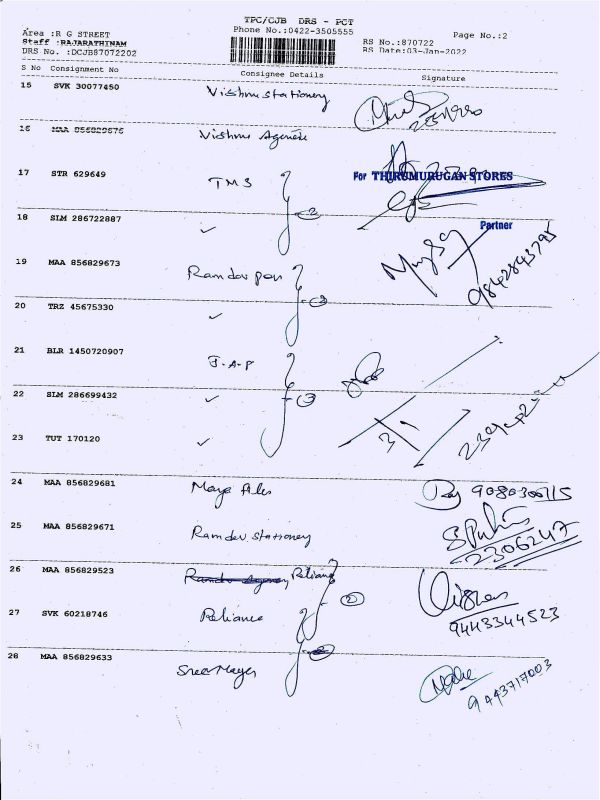 TPC/CJB DRS - PCT
Area :R G STREET Phone No.:0422-3505555 Page No.:2
Staff :RAJARATHINAM RS No.:870722
DRS No. :DCJB87072202 RS Date:03-Jan-2022
S No Consignment No Consignee Details Signature
15 SVK 30077450 Vishnu Stationery
16 MAA 856829676 Vishnu Agencies
17 STR 629649 TMS For THIRUMURUGAN STORES
18 SLM 286722887 ✓ 2 Partner
19 MAA 856829673 Ramdev pen 9842843795
20 TRZ 45675330 ✓ 2
21 BLR 1450720907 J.A.P
22 SLM 286699432 ✓ 3
23 TUT 170120 ✓ 3
24 MAA 856829681 Maya files Raj 9080300115
25 MAA 856829671 Ramdev Stationery 2306247
26 MAA 856829523 Reliance 2
27 SVK 60218746 Reliance 9443344523
28 MAA 856829633 Sree Mayer 9443717003